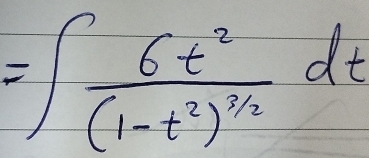 = ∫ 6t² / (1-t²)^{3/2} dt